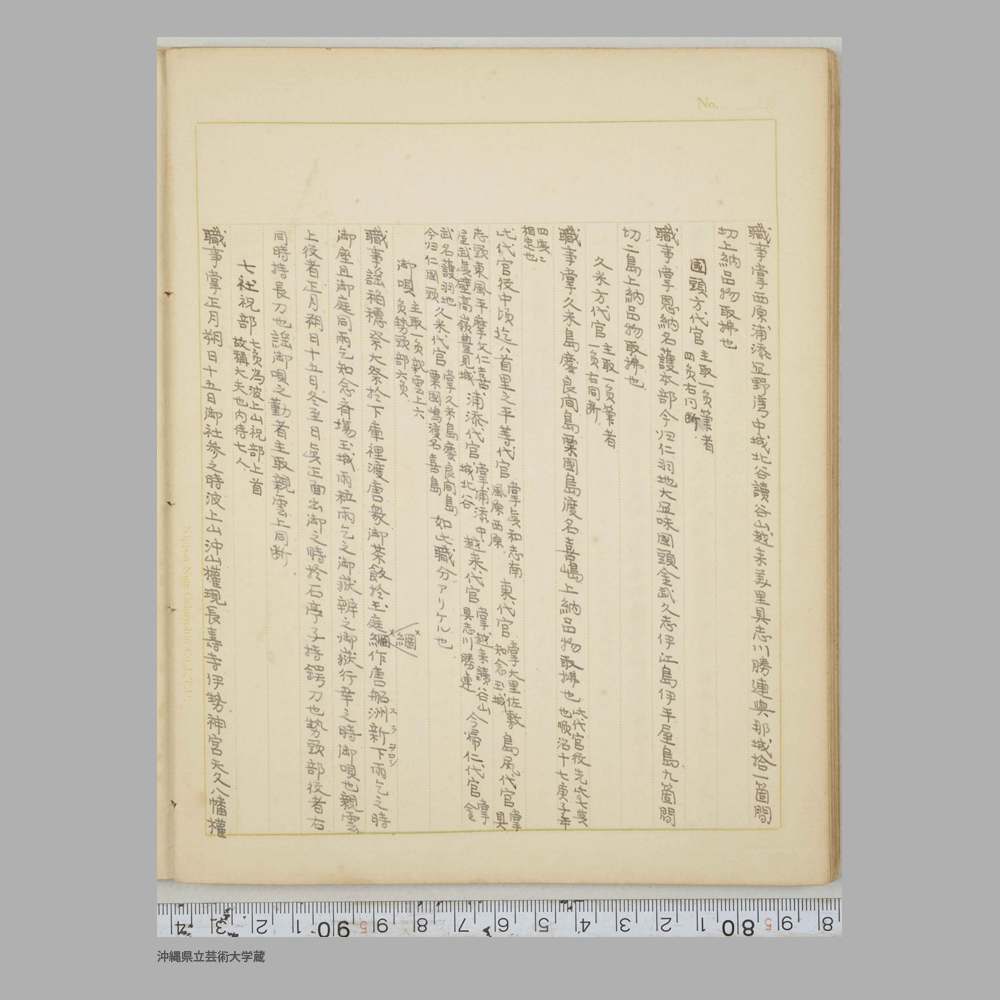 No.
職事掌西原浦添宜野湾中城北谷讀谷山越来美里具志川勝連與那城拾一箇間
切上納品物取拂也
國頭方代官 主取一負筆者
四負右同断
職事掌恩納名護本部今归仁羽地大宜味國頭金武久志伊江島伊平屋島九箇間
切二島上納品物取拂也
久米方代官 主取一負筆者
一負右同断
職事掌久米島慶良間島粟國島渡名喜島上納品物取拂也 此代官役先
也順治十七庚子年
相定也
此代官役中頃迄八首里之平等代官 掌眞和志南
風原西原 東代官 掌大里佐敷
知念玉城 島尻代官 掌
具
志頭東風平摩文仁喜
屋武眞壁高嶺豊見城 浦添代官 掌浦添中
城北谷 越来代官 掌越来讀谷山
具志川勝連 今帰仁代官 掌
金
武名護羽地
今归仁國頭 久米代官 掌久米島慶良間島
粟國島渡名喜島 如此職分アリケル也
御唄 主取一負親雲上六
負勢頭部六負
職事謡稲穂祭大祭於下庫裡渡唐衆御茶飯於玉庭綱作唐船洲新下雨乞之時
綱
御座且御庭同雨乞知念斎場玉城雨粒雨乞之御嶽辨之御嶽行幸之時御唄也親雲
上役者正月朔日十五日冬至日眞正面出御之時於石亭子捧鍔刀也勢頭部役者右
同時捧長刀也謡御唄之勤者主取親雲上同断
七社祝部 七負為波上山祝部上首
故稱大夫也内侍七人
職事掌正月朔日十五日御社参之時波上山沖山權現長壽寺伊勢神宮天久八幡權
沖縄県立芸術大学蔵